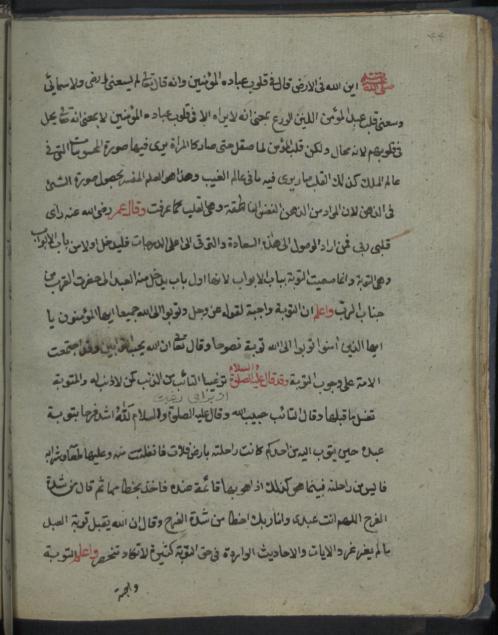 ٤٤
صلى الله عليه وسلم اين الله فى الارض قال فى قلوب عباده المؤمنين وانه قال تعالى لم يسعنى ارضى ولا سمائى
وسعنى قلب عبدى المؤمن اللين الورع بمعنى انه لا يراه الا فى قلوب عباده المؤمنين لا بمعنى انه تعالى يحل
فى قلوبهم لانه محال ولكن قلب المؤمن لما صقل حتى صار كالمراة يرى فيها صورة المحسوسات التى فى
عالم الملك كذلك القلب صار يرى فيه ما فى عالم الغيب وهذا هو العلم المفسر بحصول صورة الشئ
فى الذهن لان المراد من الذهن النفس الناطقة وهى القلب كما عرفت وقال عمر رضى الله عنه راى
قلبى ربى فمن اراد الوصول الى هذه السعادة والترقى الى على الدرجات فليدخل اولا من باب الابواب
وهى التوبة وانما سميت التوبة بباب الابواب لانها اول باب يدخل منه العبد الى حضرت القرب من
جناب الرب واعلم ان التوبة واجبة لقوله عز وجل وتوبوا الى الله جميعا ايها المؤمنون يا
ايها الذين امنوا توبوا الى الله توبة نصوحا وقال تعالى ان الله يحب التوابين وقد اجتمعت
الامة على وجوب التوبة وقد قال عليه الصلوة والسلام ترغيبا التائب من الذنب كمن لا ذنب له والتوبة
تغسل ما قبلها وقال التائب حبيب الله وقال عليه الصلوة والسلام لله اشد فرحا بتوبة
عبده حين يتوب اليه من احدكم كانت راحلته بارض فلات فانفلتت منه وعليها طعامه وشرابه
فايس من راحلته فبينما هو كذلك اذ هو بها قائمة عنده فاخذ بخطامها ثم قال من شدة
الفرح اللهم انت عبدى وانا ربك اخطا من شدة الفرح وقال ان الله يقبل توبة العبد
ما لم يغرغر والايات والاحاديث الواردة فى حق التوبة كثيرة لا تكاد تنحصر واعلم التوبة
واجبة